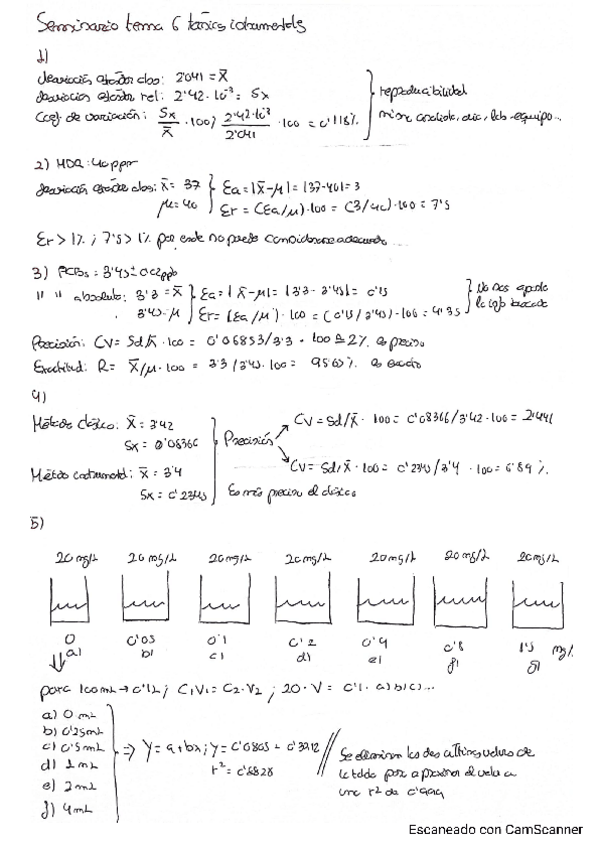 Seminario tema 6 técnicas instrumentales
1)
desviación estándar abs: 2'041 = X̄
desviación estándar rel: 2'42·10⁻³ = Sx
Coef de variación: Sx/X̄ · 100; 2'42·10⁻³/2'041 · 100 = 0'118%
reproducibilidad
mismo analista, día, lab, equipo...
2) MDR: 40ppm
X̄ = 37
μ = 40
Ea = |X̄-μ| = |37-40| = 3
Er = (Ea/μ)·100 = (3/40)·100 = 7'5
Er > 1%; 7'5 > 1% por ende no puede considerarse adecuado
3) PCBs = 3'45 ± 0'2ppb
" " absoluto: 3'3 = X̄
3'45 = μ
Ea = |X̄-μ| = |3'3 - 3'45| = 0'15
Er = (Ea/μ)·100 = (0'15/3'45)·100 = 4'35
Precisión: CV = Sd/X̄ · 100 = 0'06853/3'3 · 100 ≅ 2% es preciso
Exactitud: R = X̄/μ · 100 = 3'3/3'45 · 100 = 95'65% es exacto
4)
Método clásico: X̄ = 3'42
Sx = 0'08366
Método instrumental: X̄ = 3'4
Sx = 0'2345
Precisión
CV = Sd/X̄ · 100 = 0'08366/3'42 · 100 = 2'44%
CV = Sd/X̄ · 100 = 0'2345/3'4 · 100 = 6'89%
Es más preciso el clásico
5)
20 mg/L 20 mg/L 20 mg/L 20 mg/L 20 mg/L 20 mg/L 20 mg/L
0 0'05 0'1 0'2 0'4 0'8 1'5 mg/L
a) b) c) d) e) f) g)
para 100mL → 0'1L; C₁V₁ = C₂·V₂; 20·V = 0'1· a) b) c)...
a) 0 mL
b) 0'25mL
c) 0'5mL
d) 1mL
e) 2mL
f) 4mL
⇒ y = a + bx; y = 0'0805 + 0'3912
r² = 0'8828
Se eliminan los dos últimos valores de
la tabla para aproximar el valor a
una r² de 0'999
Escaneado con CamScanner